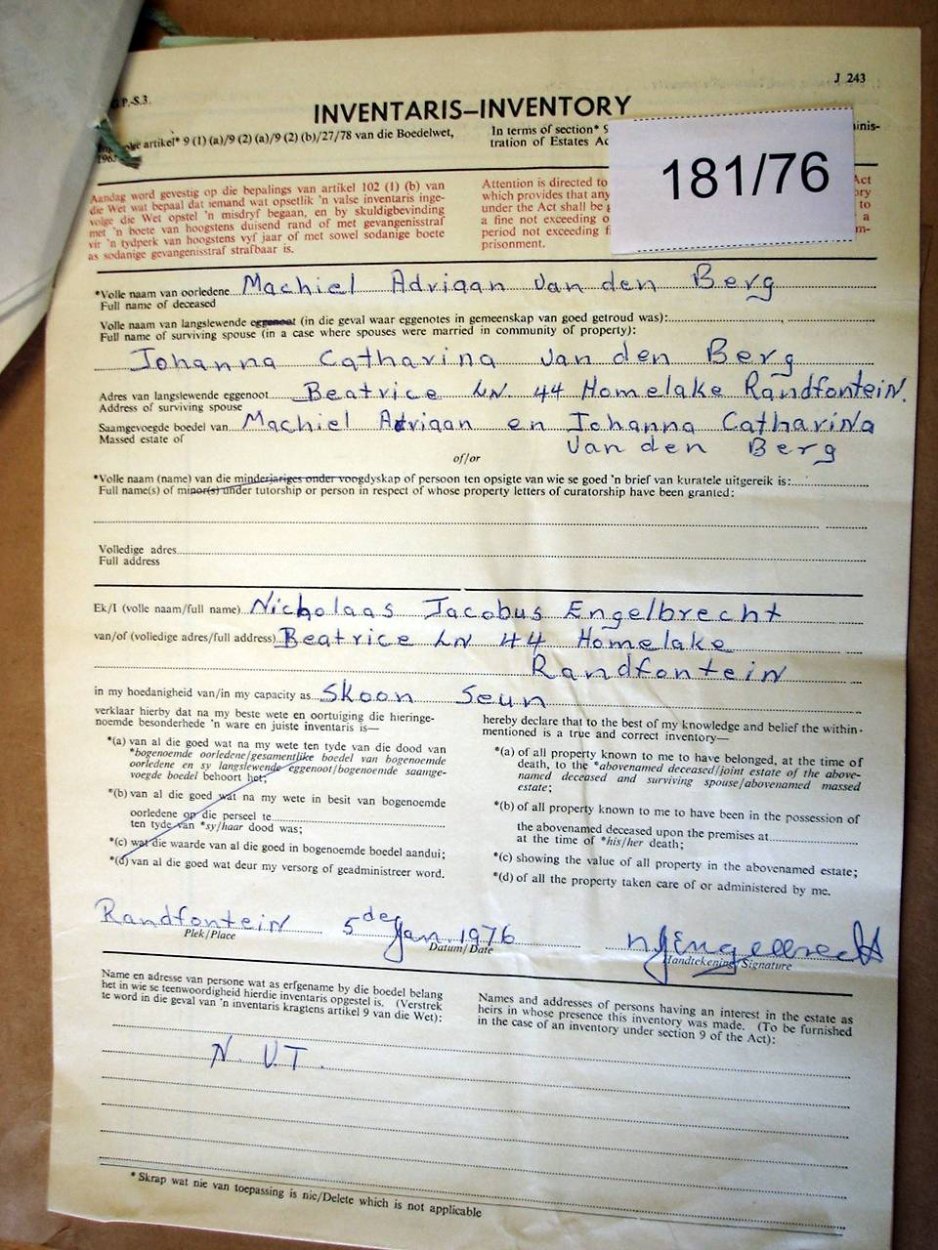 J 243
P.-S.3.
INVENTARIS–INVENTORY
artikel* 9 (1) (a)/9 (2) (a)/9 (2) (b)/27/78 van die Boedelwet,
In terms of section* 9
tration of Estates Ac
181/76
Aandag word gevestig op die bepalings van artikel 102 (1) (b) van
die Wet wat bepaal dat iemand wat opsetlik 'n valse inventaris inge-
volge die Wet opstel 'n misdryf begaan, en by skuldigbevinding
met 'n boete van hoogstens duisend rand of met gevangenisstraf
vir 'n tydperk van hoogstens vyf jaar of met sowel sodanige boete
as sodanige gevangenisstraf strafbaar is.
Attention is directed to
which provides that any
under the Act shall be
a fine not exceeding
period not exceeding
prisonment.
Act
to
a
*Volle naam van oorledene Machiel Adriaan Van den Berg
Full name of deceased
Volle naam van langslewende eggenoot (in die geval waar eggenotes in gemeenskap van goed getroud was):
Full name of surviving spouse (in a case where spouses were married in community of property):
Johanna Catharina Van den Berg
Adres van langslewende eggenoot Beatrice LN. 44 Homelake Randfontein.
Address of surviving spouse
Saamgevoegde boedel van Machiel Adriaan en Johanna Catharina
Massed estate of Van den Berg
of/or
*Volle naam (name) van die minderjariges onder voogdyskap of persoon ten opsigte van wie se goed 'n brief van kuratele uitgereik is:
Full name(s) of minor(s) under tutorship or person in respect of whose property letters of curatorship have been granted:
Volledige adres
Full address
Ek/I (volle naam/full name) Nicholaas Jacobus Engelbrecht
van/of (volledige adres/full address) Beatrice LN 44 Homelake
Randfontein
in my hoedanigheid van/in my capacity as Skoon Seun
verklaar hierby dat na my beste wete en oortuiging die hieringe-
noemde besonderhede 'n ware en juiste inventaris is—
*(a) van al die goed wat na my wete ten tyde van die dood van
*bogenoemde oorledene/gesamentlike boedel van bogenoemde
oorledene en sy langslewende eggenoot/bogenoemde saamge-
voegde boedel behoort het;
*(b) van al die goed wat na my wete in besit van bogenoemde
oorledene op die perseel te
ten tyde van *sy/haar dood was;
*(c) wat die waarde van al die goed in bogenoemde boedel aandui;
*(d) van al die goed wat deur my versorg of geadministreer word.
hereby declare that to the best of my knowledge and belief the within-
mentioned is a true and correct inventory—
*(a) of all property known to me to have belonged, at the time of
death, to the *abovenamed deceased/joint estate of the above-
named deceased and surviving spouse/abovenamed massed
estate;
*(b) of all property known to me to have been in the possession of
the abovenamed deceased upon the premises at
at the time of *his/her death;
*(c) showing the value of all property in the abovenamed estate;
*(d) of all the property taken care of or administered by me.
Randfontein 5de Jan. 1976 NJEngelbrecht
Plek/Place Datum/Date Handtekening/Signature
Name en adresse van persone wat as erfgename by die boedel belang
het in wie se teenwoordigheid hierdie inventaris opgestel is. (Verstrek
te word in die geval van 'n inventaris kragtens artikel 9 van die Wet):
Names and addresses of persons having an interest in the estate as
heirs in whose presence this inventory was made. (To be furnished
in the case of an inventory under section 9 of the Act):
N.V.T.
* Skrap wat nie van toepassing is nie/Delete which is not applicable